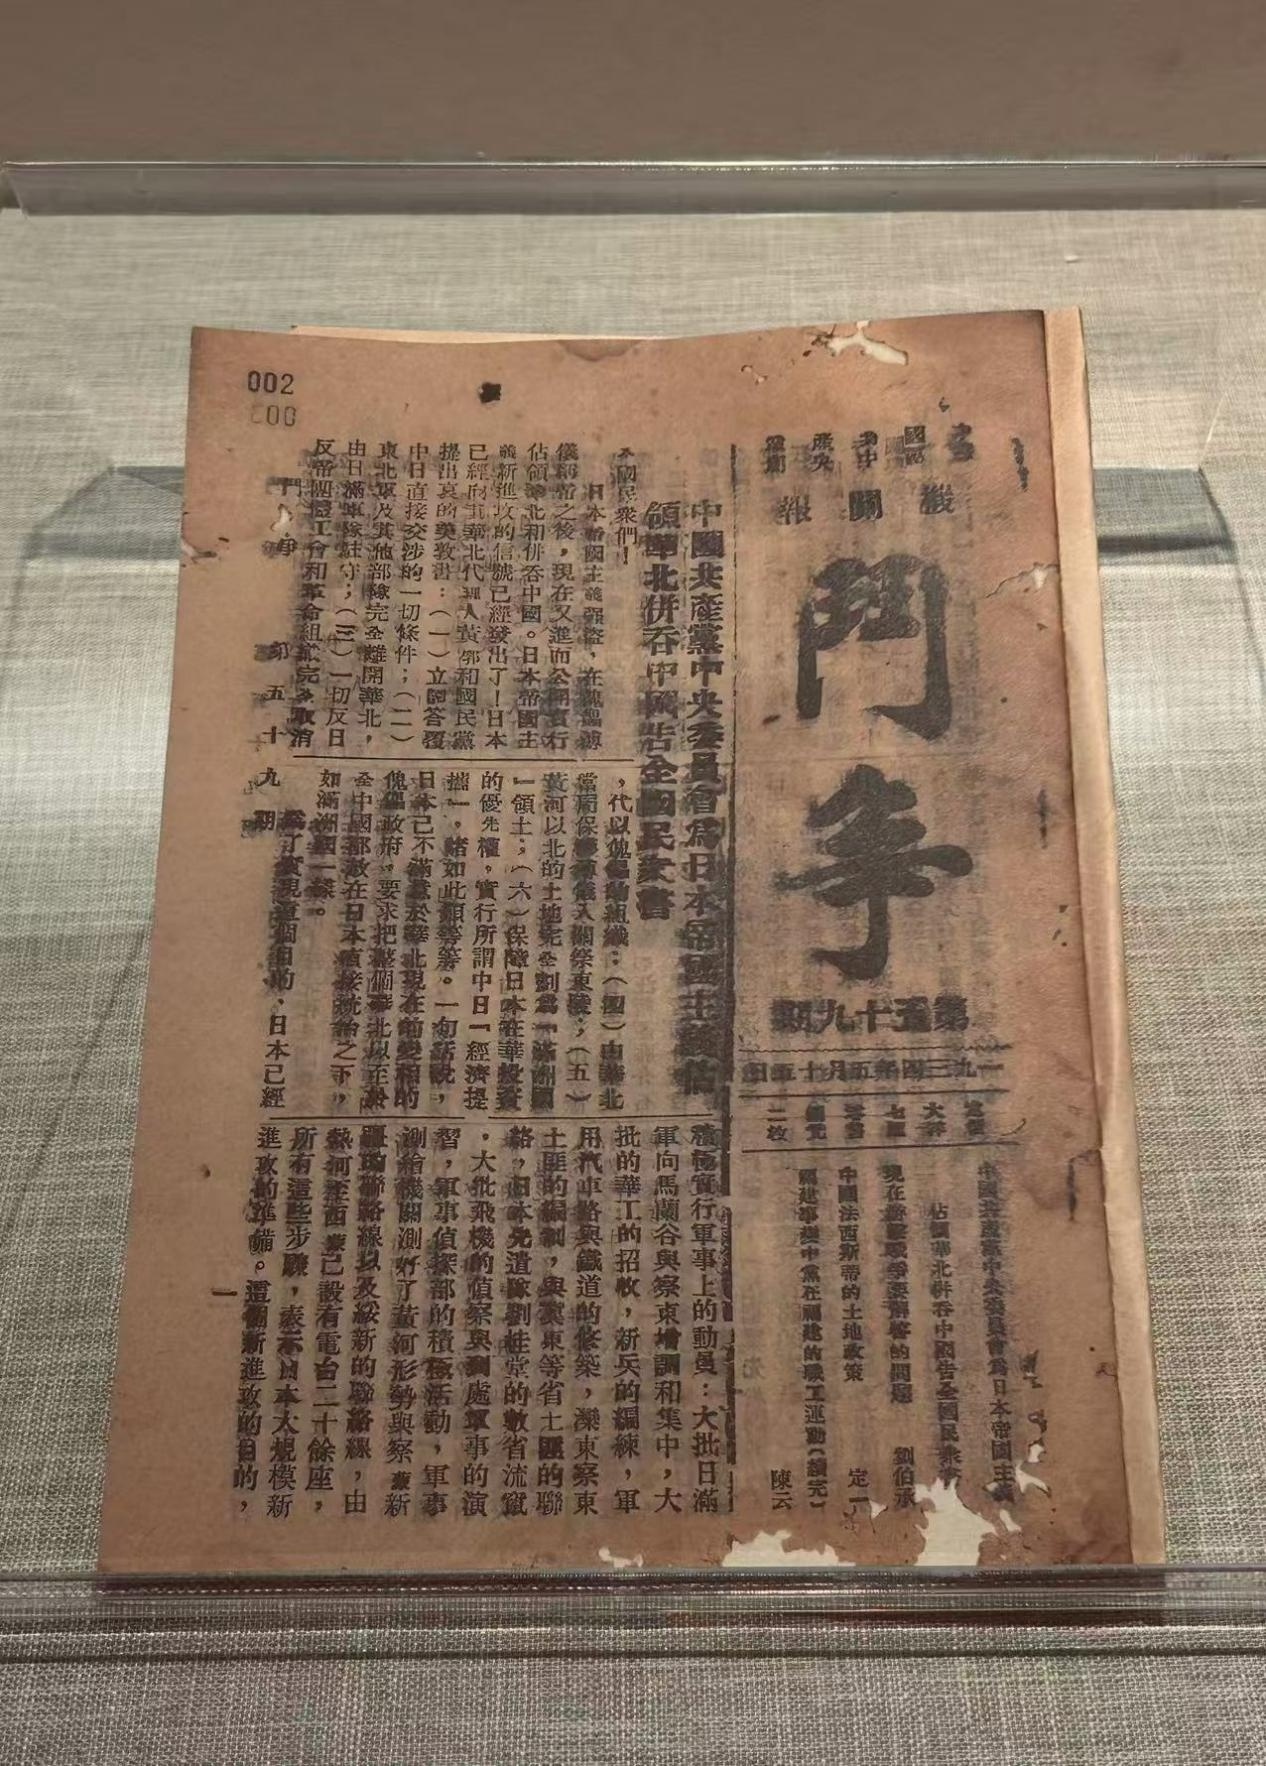 002
機關報
鬥爭
第五十九期
一九三四年五月十五日
二枚
佔領華北併吞中國告全國民衆書
劉伯承
中國法西斯蒂的土地政策
定一
福建事變中黨在福建的職工運動(續完)
陳云
中國共產黨中央委員會爲日本帝國主義佔
領華北併吞中國告全國民衆書
全國民衆們!
日本帝國主義強盜,在傀儡溥
儀稱帝之後,現在又進而公開實行
佔領華北和併吞中國。日本帝國主
義新進攻的信號已經發出了!日本
已經向其華北代理人黃郛和國民黨
提出哀的美敦書:(一)立即答覆
中日直接交涉的一切條件;(二)
東北軍及其他部隊完全離開華北,
由日滿軍隊駐守;(三)一切反日
反帝團體工會和革命組織完全取消
,代以傀儡的組織:(四)由華北
當局保護溥儀入關祭東陵;(五)
黃河以北的土地完全劃爲「滿洲國
」領土;(六)保障日本在華投資
的優先權,實行所謂中日「經濟提
攜」,諸如此類等等。一句話說,
日本已不滿意於華北現在的變相的
傀儡政府,要求把整個華北以至於
全中國都放在日本直接統治之下,
如滿洲國一樣。
爲了實現這個目的、日本已經
積極實行軍事上的動員:大批日滿
軍向馬蘭谷與察東增調和集中,大
批的華工的招收,新兵的編練,軍
用汽車路與鐵道的修築,灤東察東
土匪的編制,與冀東等省土匪的聯
絡,日本先遣隊劉桂堂的數省流竄
,大批飛機的偵察與到處軍事的演
習,軍事偵探部的積極活動,軍事
測繪機關測好了黃河形勢與察蒙新
疆的聯絡線以及綏新的聯絡線,由
熱河至西蒙已設有電台二十餘座,
所有這些步驟,表示日本大規模新
進攻的準備。這個新進攻的目的,
第五十九期
一